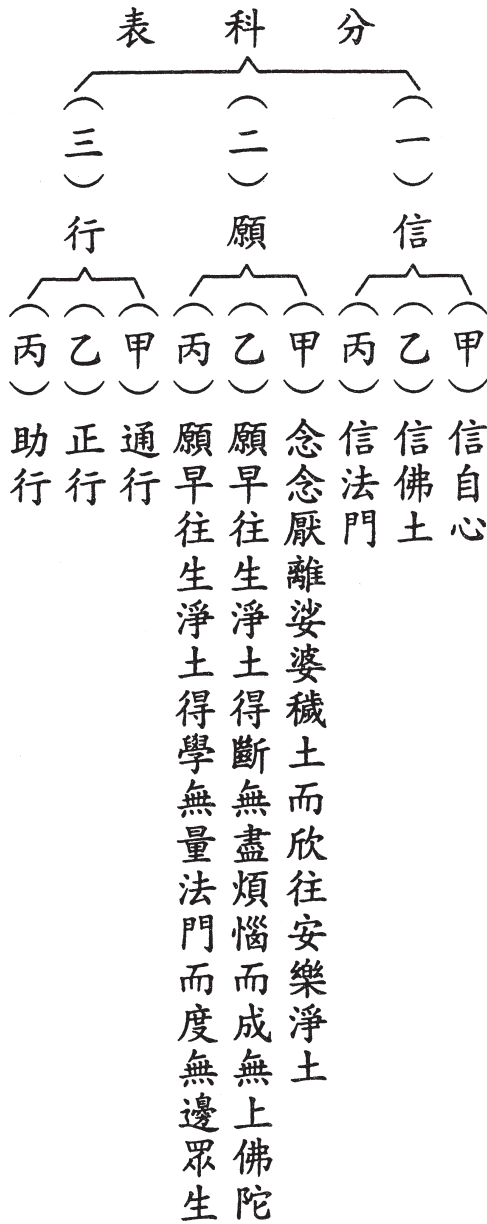 分科表
（一）信
（甲）信自心
（乙）信佛土
（丙）信法門
（二）願
（甲）念念厭離娑婆穢土而欣往安樂淨土
（乙）願早往生淨土得斷無盡煩惱而成無上佛陀
（丙）願早往生淨土得學無量法門而度無邊眾生
（三）行
（甲）通行
（乙）正行
（丙）助行